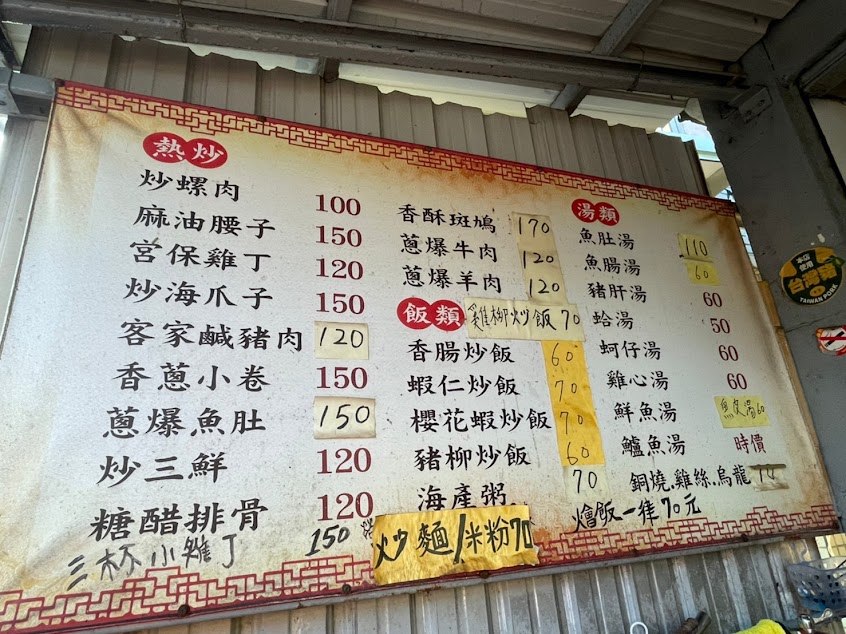 熱炒
炒螺肉 100
麻油腰子 150
宮保雞丁 120
炒海瓜子 150
客家鹹豬肉 120
香蔥小卷 150
蔥爆魚肚 150
炒三鮮 120
糖醋排骨 120
三杯小雞丁 150
香酥斑鳩 170
蔥爆牛肉 120
蔥爆羊肉 120
飯類
雞柳炒飯 70
香腸炒飯 60
蝦仁炒飯 70
櫻花蝦炒飯 70
豬柳炒飯 60
海產粥 70
炒麵/米粉70
湯類
魚肚湯 110
魚腸湯 60
豬肝湯 60
蛤湯 50
蚵仔湯 60
雞心湯 60
鮮魚湯 魚皮湯60
鱸魚湯 時價
銅燒.雞絲.烏龍
燴飯一律70元
本店
使用
台灣豬
TAIWAN PORK